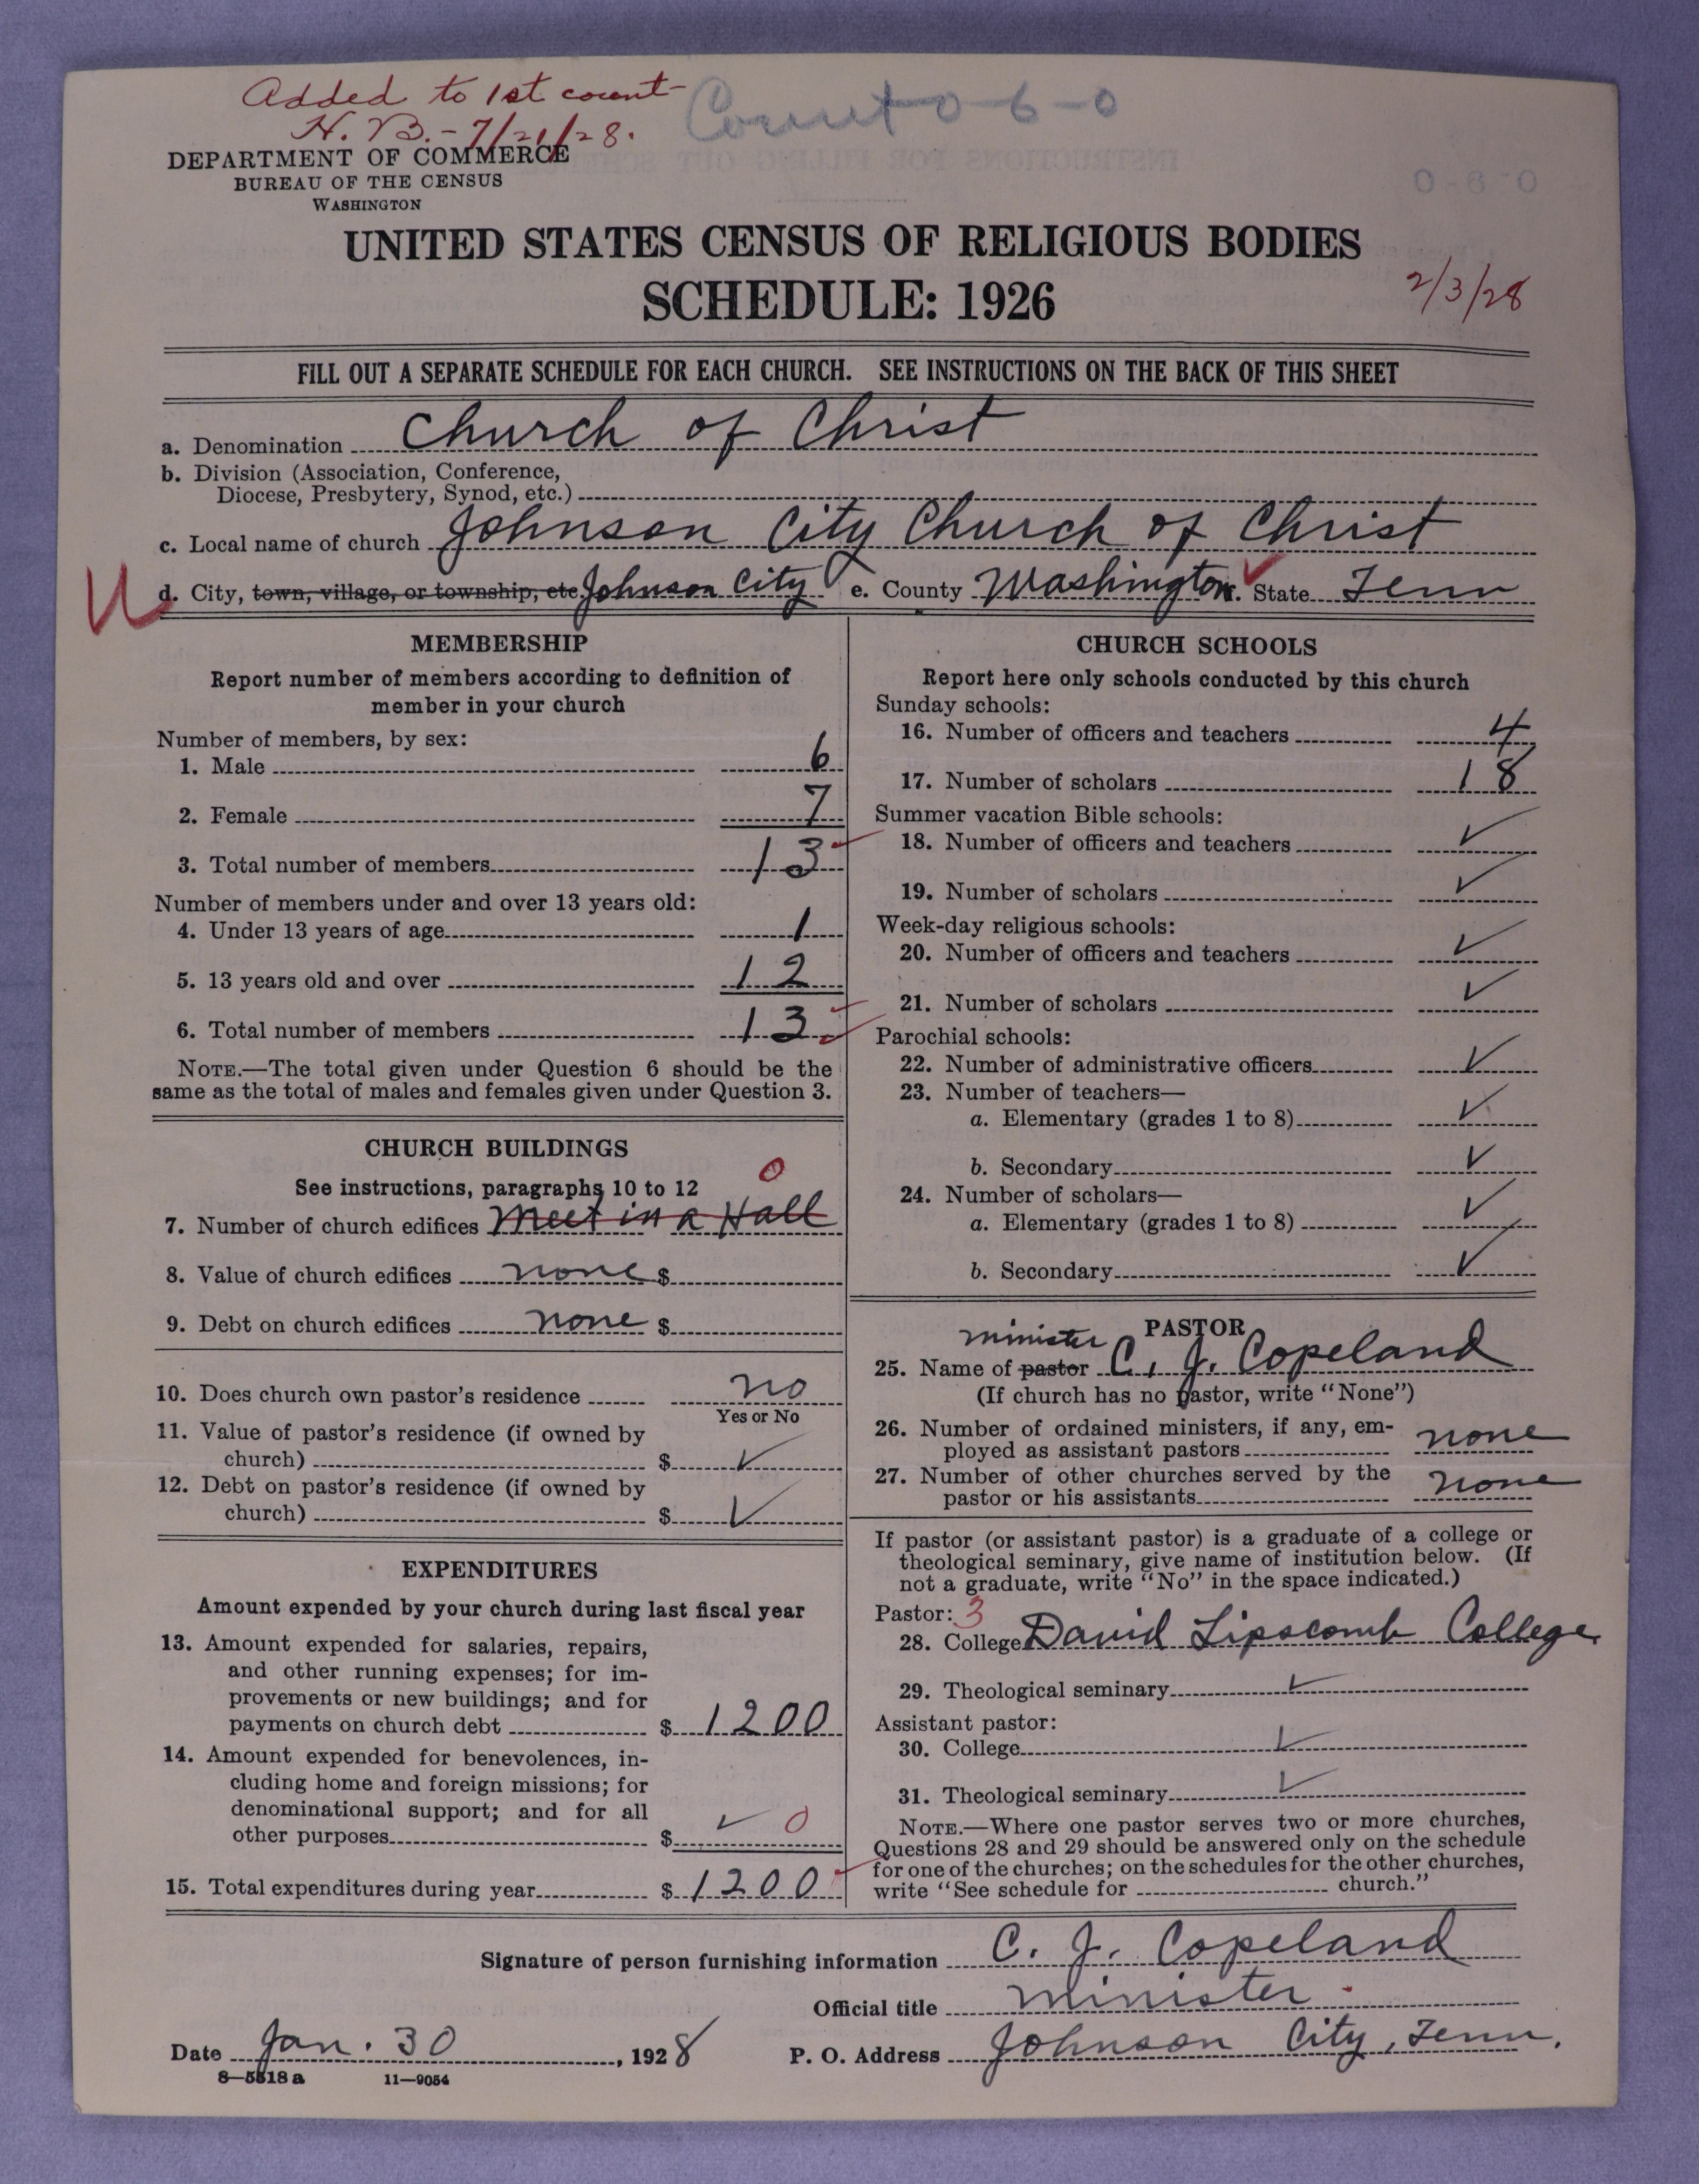 Added to 1st count
H. B. - 7/21/28.
Count 0-6-0
DEPARTMENT OF COMMERCE
BUREAU OF THE CENSUS
WASHINGTON
0-6-0
UNITED STATES CENSUS OF RELIGIOUS BODIES
SCHEDULE: 1926
2/3/28
FILL OUT A SEPARATE SCHEDULE FOR EACH CHURCH. SEE INSTRUCTIONS ON THE BACK OF THIS SHEET
a. Denomination Church of Christ
b. Division (Association, Conference,
Diocese, Presbytery, Synod, etc.)
c. Local name of church Johnson City Church of Christ
d. City, town, village, or township, etc Johnson City e. County Washington f. State Tenn
MEMBERSHIP
Report number of members according to definition of
member in your church
Number of members, by sex:
1. Male 6
2. Female 7
3. Total number of members 13
Number of members under and over 13 years old:
4. Under 13 years of age 1
5. 13 years old and over 12
6. Total number of members 13
NOTE.—The total given under Question 6 should be the
same as the total of males and females given under Question 3.
CHURCH BUILDINGS
See instructions, paragraphs 10 to 12 0
7. Number of church edifices Meet in a Hall
8. Value of church edifices none $
9. Debt on church edifices none $
10. Does church own pastor's residence no
Yes or No
11. Value of pastor's residence (if owned by
church) $ ✓
12. Debt on pastor's residence (if owned by
church) $ ✓
EXPENDITURES
Amount expended by your church during last fiscal year
13. Amount expended for salaries, repairs,
and other running expenses; for im-
provements or new buildings; and for
payments on church debt $ 1200
14. Amount expended for benevolences, in-
cluding home and foreign missions; for
denominational support; and for all
other purposes $ ✓ 0
15. Total expenditures during year $ 1200
CHURCH SCHOOLS
Report here only schools conducted by this church
Sunday schools:
16. Number of officers and teachers 4
17. Number of scholars 18
Summer vacation Bible schools:
18. Number of officers and teachers ✓
19. Number of scholars ✓
Week-day religious schools:
20. Number of officers and teachers ✓
21. Number of scholars ✓
Parochial schools:
22. Number of administrative officers ✓
23. Number of teachers—
a. Elementary (grades 1 to 8) ✓
b. Secondary ✓
24. Number of scholars—
a. Elementary (grades 1 to 8) ✓
b. Secondary ✓
PASTOR
minister
25. Name of pastor C. J. Copeland
(If church has no pastor, write "None")
26. Number of ordained ministers, if any, em-
ployed as assistant pastors none
27. Number of other churches served by the
pastor or his assistants none
If pastor (or assistant pastor) is a graduate of a college or
theological seminary, give name of institution below. (If
not a graduate, write "No" in the space indicated.)
Pastor: 3
28. College David Lipscomb College
29. Theological seminary ✓
Assistant pastor:
30. College ✓
31. Theological seminary ✓
NOTE.—Where one pastor serves two or more churches,
Questions 28 and 29 should be answered only on the schedule
for one of the churches; on the schedules for the other churches,
write "See schedule for church."
Signature of person furnishing information C. J. Copeland
Official title minister
Date Jan. 30, 1928 P. O. Address Johnson City, Tenn.
8—5518a 11—9054